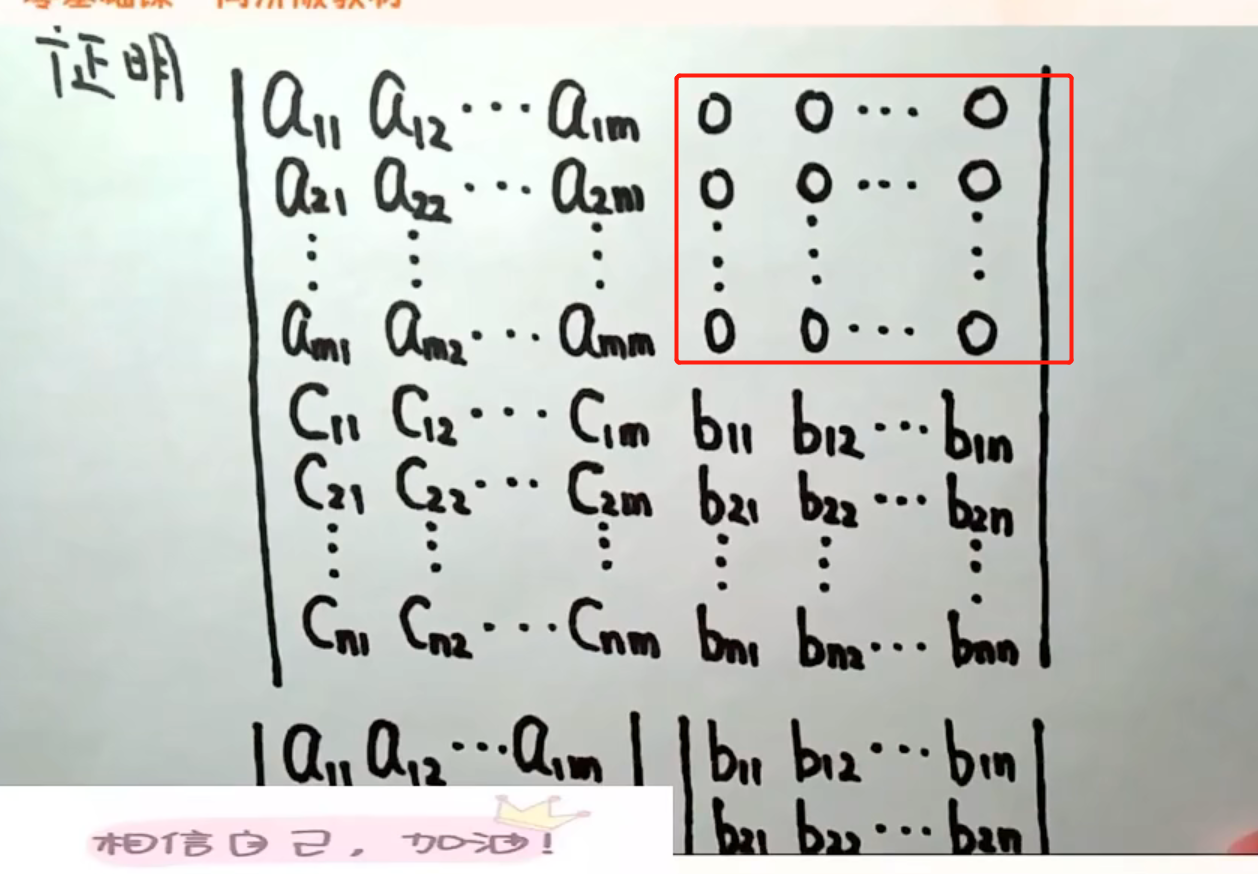 零基础课 高阶版教材
证明
a₁₁ a₁₂ ··· a₁ₘ 0 0 ··· 0
a₂₁ a₂₂ ··· a₂ₘ 0 0 ··· 0
⋮ ⋮ ⋮ ⋮ ⋮ ⋮
aₘ₁ aₘ₂ ··· aₘₘ 0 0 ··· 0
C₁₁ C₁₂ ··· C₁ₘ b₁₁ b₁₂ ··· b₁ₙ
C₂₁ C₂₂ ··· C₂ₘ b₂₁ b₂₂ ··· b₂ₙ
⋮ ⋮ ⋮ ⋮ ⋮ ⋮
Cₙ₁ Cₙ₂ ··· Cₙₘ bₙ₁ bₙ₂ ··· bₙₙ
a₁₁ a₁₂ ··· a₁ₘ b₁₁ b₁₂ ··· b₁ₙ
b₂₁ b₂₂ ··· b₂ₙ
相信自己,加油!